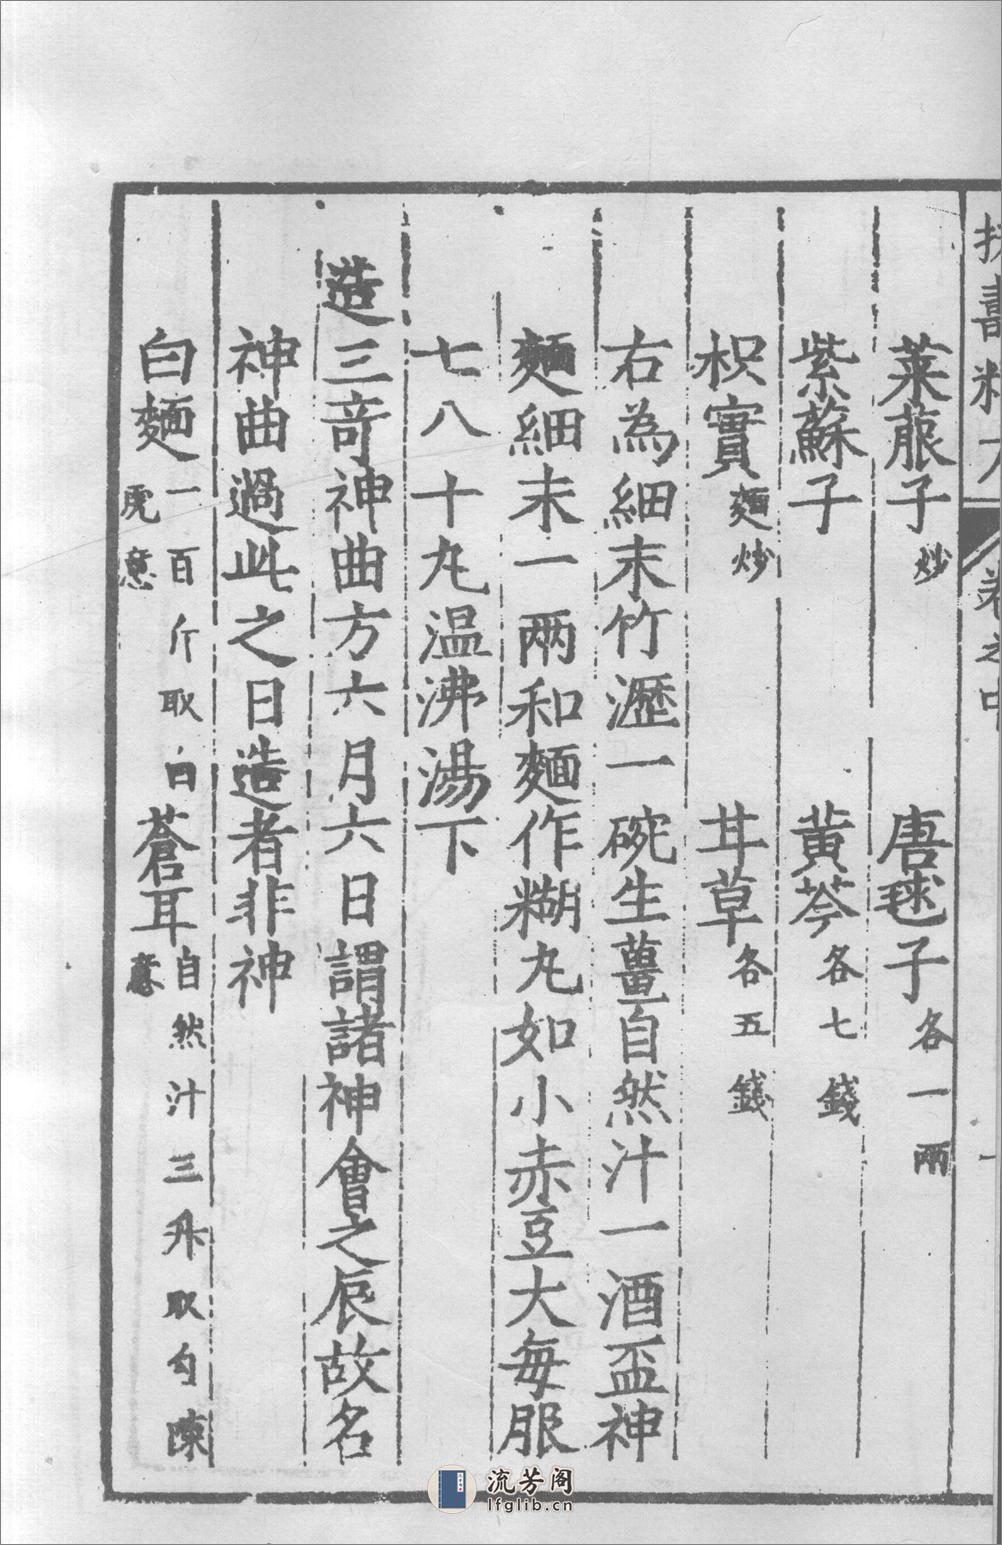 扶壽精方 卷之中
萊菔子炒 唐毬子各一兩
紫蘇子 黃芩各七錢
枳實麵炒 甘草各五錢
右為細末竹瀝一碗生薑自然汁一酒盃神
麵細末一兩和麵作糊丸如小赤豆大每服
七八十丸温沸湯下
造三竒神曲方六月六日謂諸神會之辰故名
神曲過此之日造者非神
白麵一百斤取白虎意 蒼耳自然汁三升取勾陳意
流芳阁
lfglib.cn